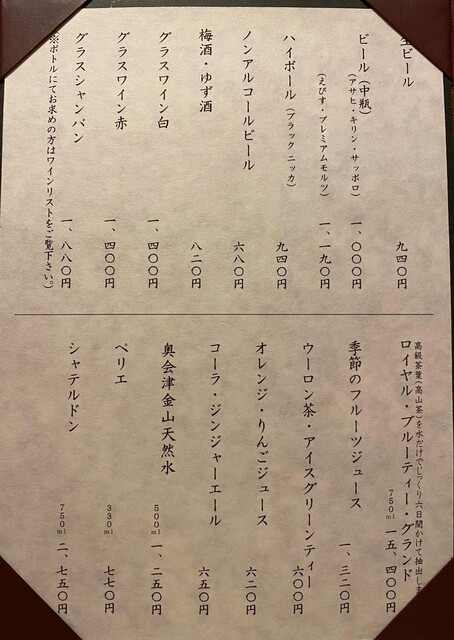 生ビール 九四〇円
ビール（中瓶）
（アサヒ・キリン・サッポロ） 一、〇〇〇円
（えびす・プレミアムモルツ） 一、一九〇円
ハイボール（ブラック ニッカ） 九四〇円
ノンアルコールビール 六八〇円
梅酒・ゆず酒 八二〇円
グラスワイン白 一、四〇〇円
グラスワイン赤 一、四〇〇円
グラスシャンパン 一、八八〇円
※ボトルにてお求めの方はワインリストをご覧下さい。）
高級茶葉（高山茶）を水だけでじっくり六日間かけて抽出しま
ロイヤル・ブルーティー・グランド 750ml 一五、四〇〇円
季節のフルーツジュース 一、三二〇円
ウーロン茶・アイスグリーンティー 六〇〇円
オレンジ・りんごジュース 六二〇円
コーラ・ジンジャーエール 六五〇円
奥会津金山天然水 500ml 一、二五〇円
ペリエ 330ml 七七〇円
シャテルドン 750ml 二、七五〇円